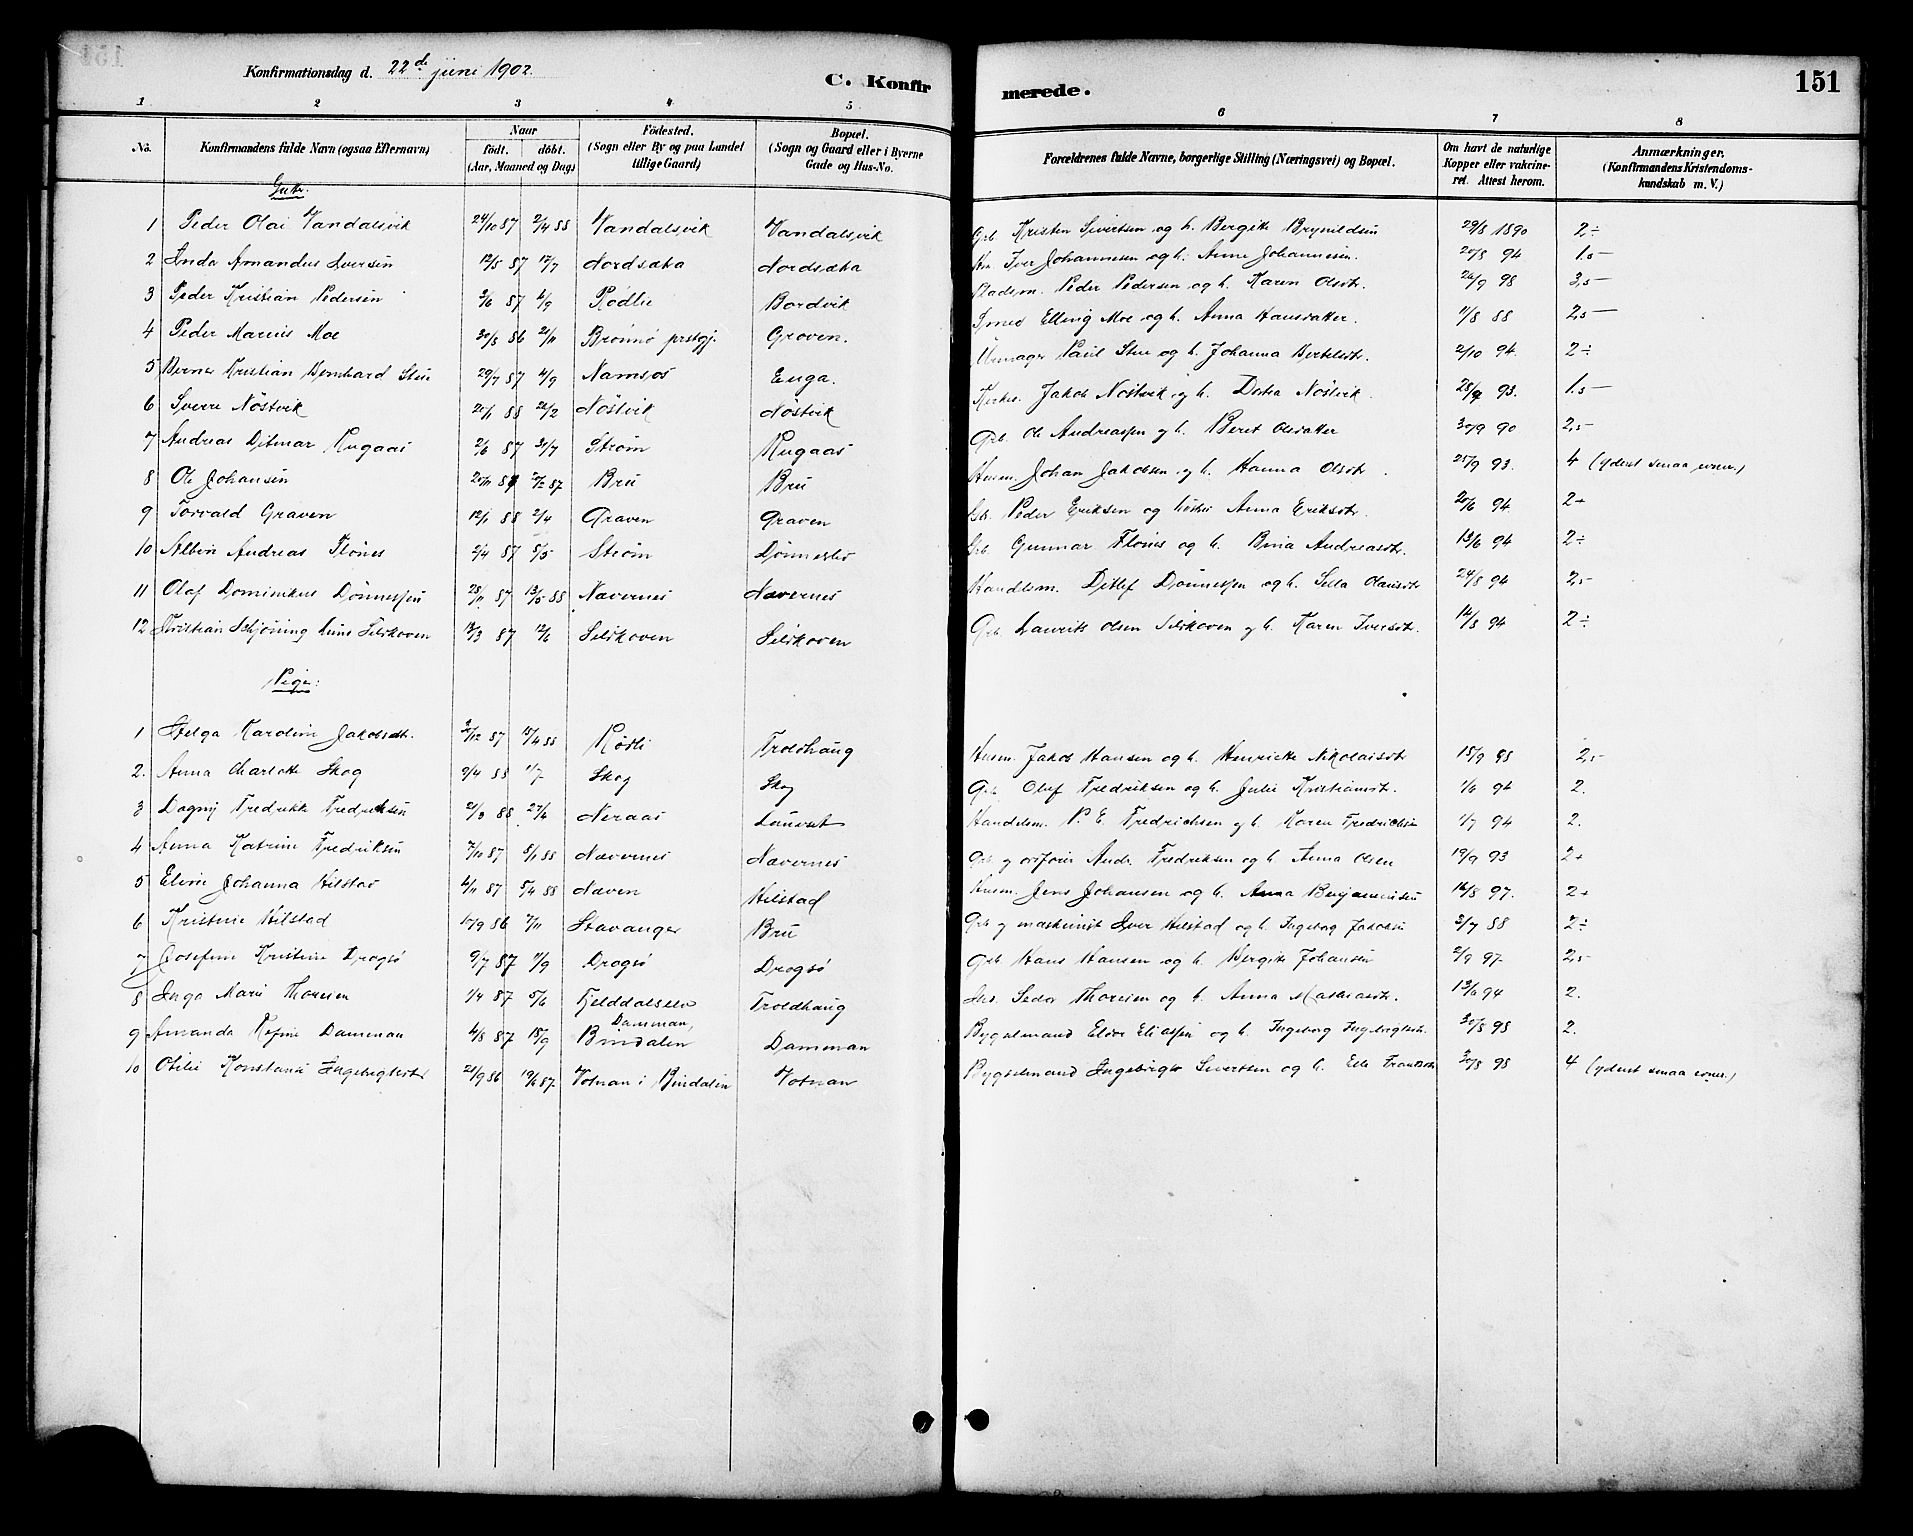 151
Konfirmationsdag d. 22de juni 1902.
C. Konfirmerede.
1 2 3 4 5 6 7 8
No. Konfirmandens fulde Navn (ogsaa Efternavn) Naar födt. döbt. (Aar, Maaned og Dag) Födested. (Sogn eller By og paa Landet tillige Gaard) Bopæl. (Sogn og Gaard eller i Byerne Gade og Hus-No. Forældrenes fulde Navne, borgerlige Stilling (Næringsvei) og Bopæl. Om havt de naturlige Kopper eller vakcineret. Attest herom. Anmærkninger. (Konfirmandens Kristendomskundskab m. V.)
Gutter.
1 Peder Olai Vandalsvik 24/10 87 2/4 88 Vandalsvik Vandalsvik Grb. Kristen Sivertsen og h. Bergitte Brynildsen 29/8 1890 2÷
2 Amandus Iversen 12/5 87 17/7 Nordsæta Nordsæta Iver Johannessen og h. Anne Johannesen. 20/8 94 1.5-
3 Peder Kristian Pedersen 3/6 87 4/9 Rødlie Bordvik Pladsm. Peder Pedersen og h. Karen Olsdtr. 26/9 98 3,5-
4 Peder Marius Moe 30/8 86 21/11 Brønnø prstgj. Groven. Elling Moe og h. Anna Hansdatter. 11/8 88 2,5-
5 Kristian Bernhard Stue 29/7 87 4/9 Namsos Enga. Urmager Paul Stue og h. Johanna Bertelsdtr. 2/10 94. 2÷
6 Sverre Nöstvik 20/1 88 26/2 Nöstvik Nöstvik Jakob Nöstvik og h. Nöstvik 28/9 93. 1.5-
7 Andreas Ditmar Rugaas 2/6 87 31/7 Strøm Rugaas Grb. Ole Andreassen og h. Beret Olsdatter 30/9 90 2,5-
8 Ole Johansen Bru Bru Husm. Johan Jakobsen og h. Hanna Olsdtr. 25/9 93. 4 (yderst smaa evner.)
9 Torvald Graven 12/1 88 2/4 Graven Graven Gb. Peder Eriksen og hustru Anna Eriksdtr. 20/6 94. 2+
10 Albin Andreas Flönes 2/4 87 5/5 Strøm Dønnesli Grb. Gunnar Flönes og h. Bina Andreasdtr. 13/6 94 2÷
11 Olaf Dominikus Dönnessen 28/11 87 13/5 88 Nævernes Nævernes Handelsm. Ditlef Dönnessen og h. Olausdtr. 24/8 94 2,5-
12 Kristian Selskoven 13/3 87 12/6 Selskoven Selskoven Grb. Laurits Olsen Selskoven og h. Karen Iversdtr. 14/8 94 2÷
Piger:
1 Helga Karoline Jakobsdtr. 15/4 88 Rødli Troldhaug Husm. Jakob Hansen og h. Henrikke Nikolaisdtr 15/9 98 2,5-
2. Anna Charlotte Skog 9/4 88 1/7 Skog Skog Grb. Oluf Fredriksen og h. Julie Kristiansdtr. 1/6 94 2.
3 Dagny Fredrikke Fredriksen 2/3 88 24/6 Neraas Handelsm. P. E. Fredrichsen og h. Karen Fredrichsen 1/7 94 2.
4 Anna Katrine Fredriksen 7/10 87 8/1 88 Nævernes Nævernes Grb. og Andr. Fredriksen og h. Anna Olsen 19/9 93 2+
5 Eline Johanna Hilstad 4/11 87 5/4 88 Næven Hilstad Husm. Jens Johansen og h. Anna Benjaminsen 16/8 97. 2+
6 Kristine Hilstad 10/9 86 7/11 Stavanger Bru Grb. og maskinist Iver Hilstad og h. Ingeborg Jakobsen 3/7 88 2÷
7 Josefine Kristine Drogsö 9/7 87 11/9 Drogsö Drogsö Grb. Hans Hansen og h. Bergitte Johansen 2/9 97. 2,5-
8 Inga Marie Thorsen 1/4 87 5/6 Fjelddalselv Troldhaug Peder Thorsen og h. Anna 13/6 94 2.
9 Amanda Rosine Damman 4/8 87 18/9 Damman, Bindalen Damman Bygselmand Eliassen og h. Ingeborg Ingebrigtsdtr. 30/8 98 2.
10 Otilie Konstanse Ingebrigtsdtr 21/9 86 19/6 87. Votnan i Bindalen Votnan Bygselmand Ingebrigt Sivertsen og h. Else 30/8 98 4 (yderst smaa evner.)